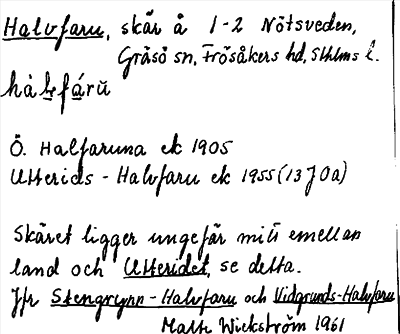 Halvfaru, skär å 1-2 Nötsveden,
Gräsö sn, Frösåkers hd, Sthlms l.
hàlvfáru̇
Ö. Halfaruna ek 1905
Utterids-Halvfaru ek 1955 (13 J 0a)
Skäret ligger ungefär mitt emellan
land och Utteridet, se detta.
Jfr Stengrynn-Halvfaru och Vidgrunds-Halvfaru
Mats Wickström 1961